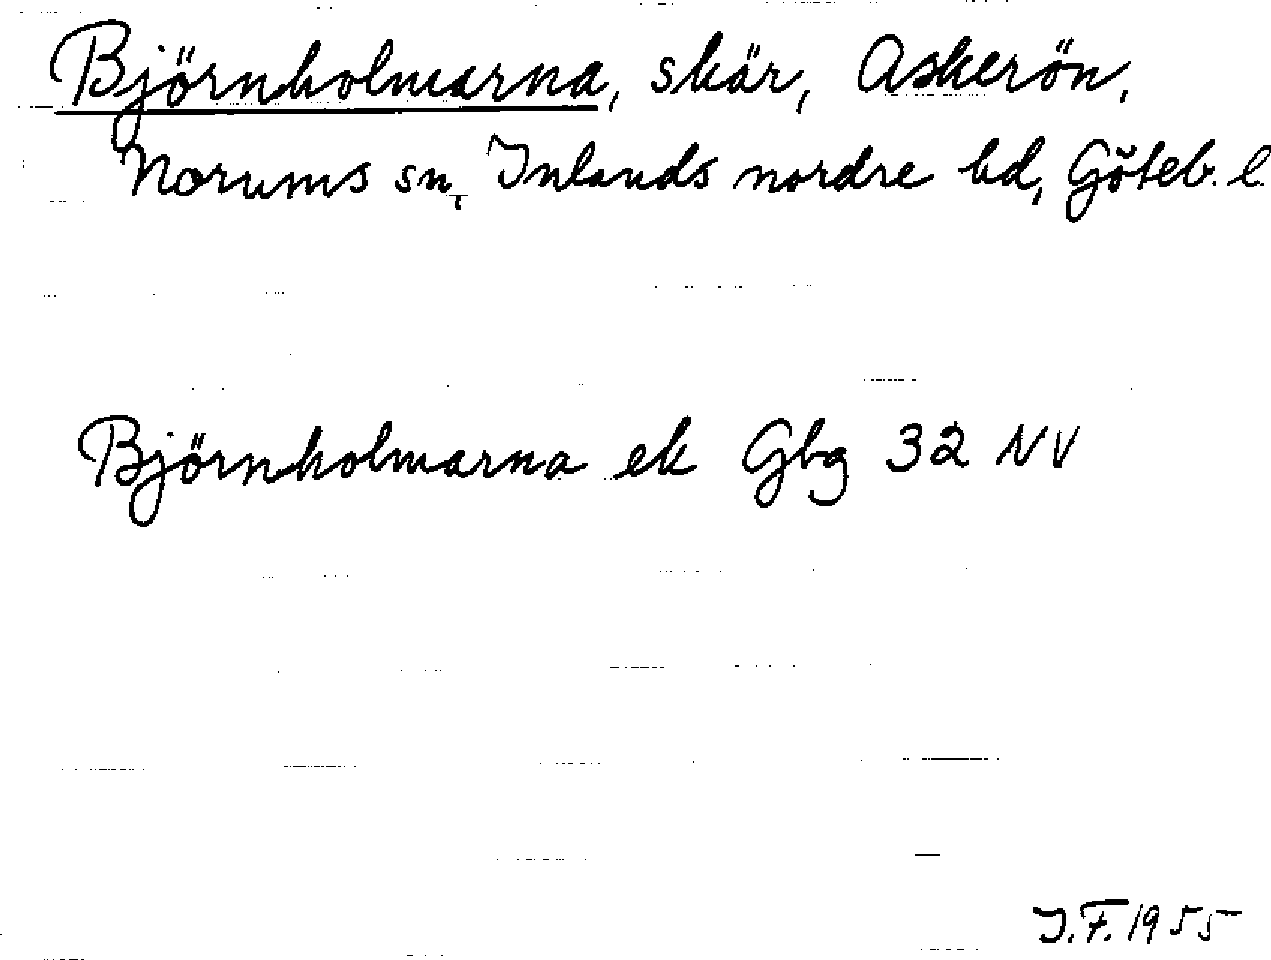 Björnholmarna, skär, Askerön,
Norums sn, Inlands nordre hd, Göteb. l.
Björnholmarna ek Gbg 32 NV
I.F. 1955